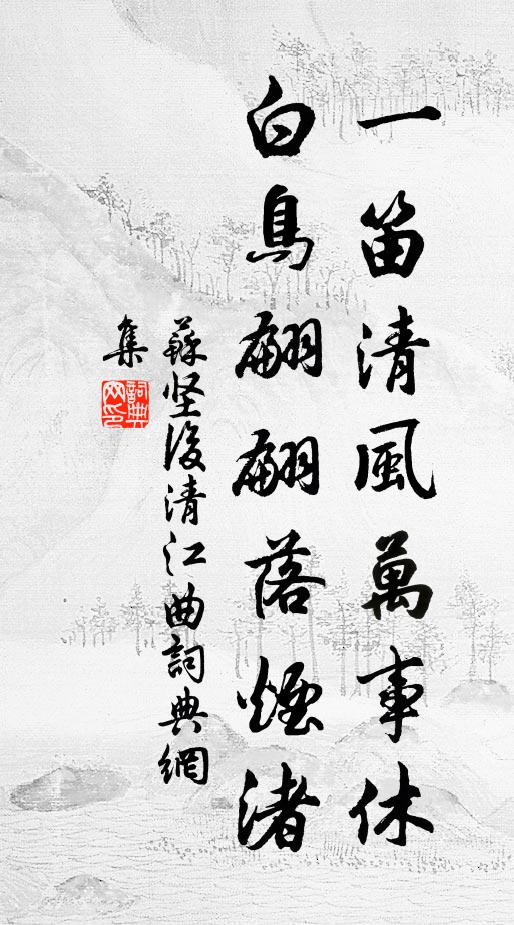 一笛清風萬事休
白鳥翩翩落煙渚
蘇坚後清江曲詞典網
集
詞典网印